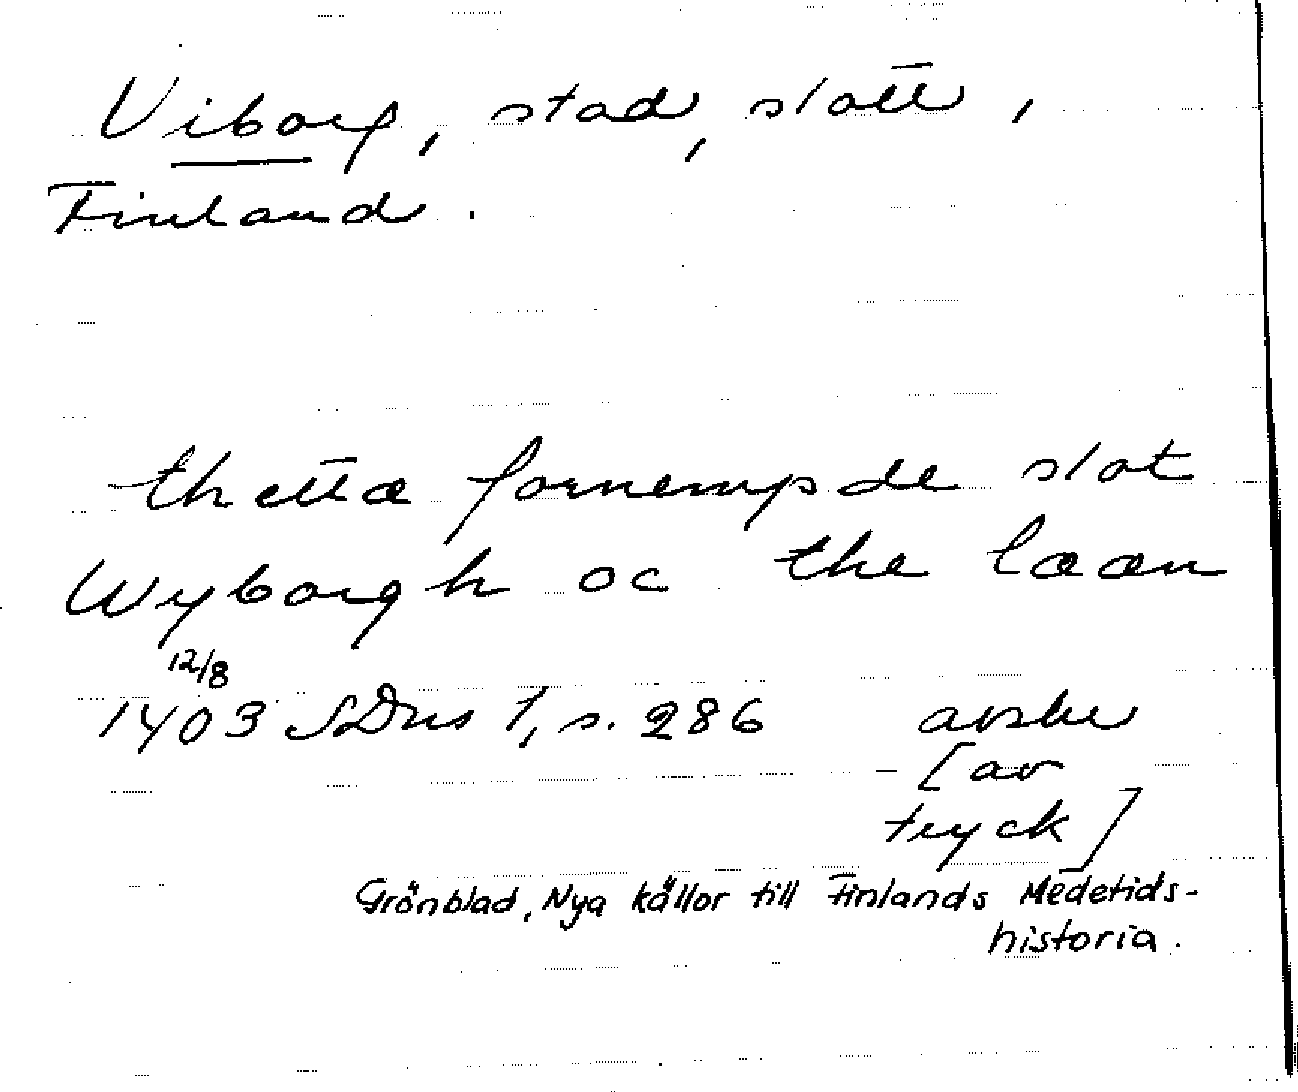 Viborg, stad, slott,
Finland.
thetta fornempde slot
Wyborgh oc the lææn
12/8
1403 SDns 1, s. 286 avskr
[av
tryck]
Grönblad, Nya källor till Finlands Medetids-
historia.